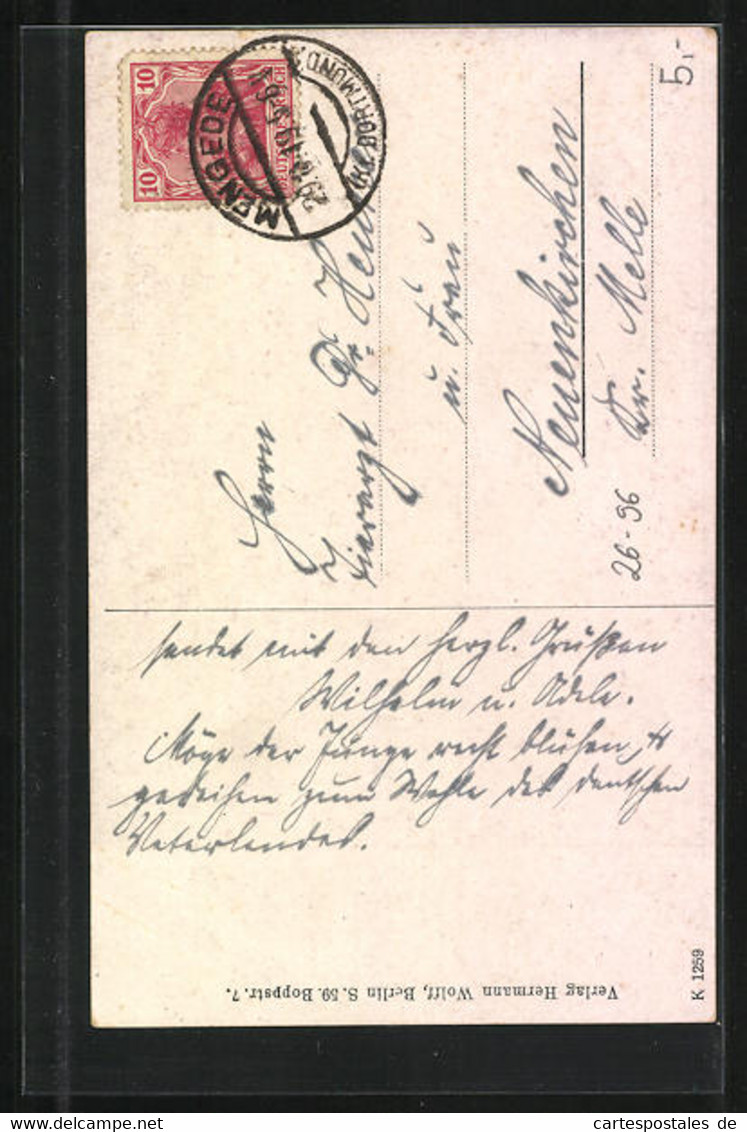 10
10
MENGEDE
(KR. DORTMUND)
5,-
Herrn
Tierarzt Dr.
u. Frau
Neuenkirchen
Kr. Melle
26-96
sendet mit den herzl. Grüßen
Wilhelm u. Adele.
Möge der Junge recht blühen &
gedeihen zum Wohle des deutschen
Vaterlandes.
Verlag Hermann Wolff, Berlin S. 59. Boppstr. 7.
K 1259
cartespostales de